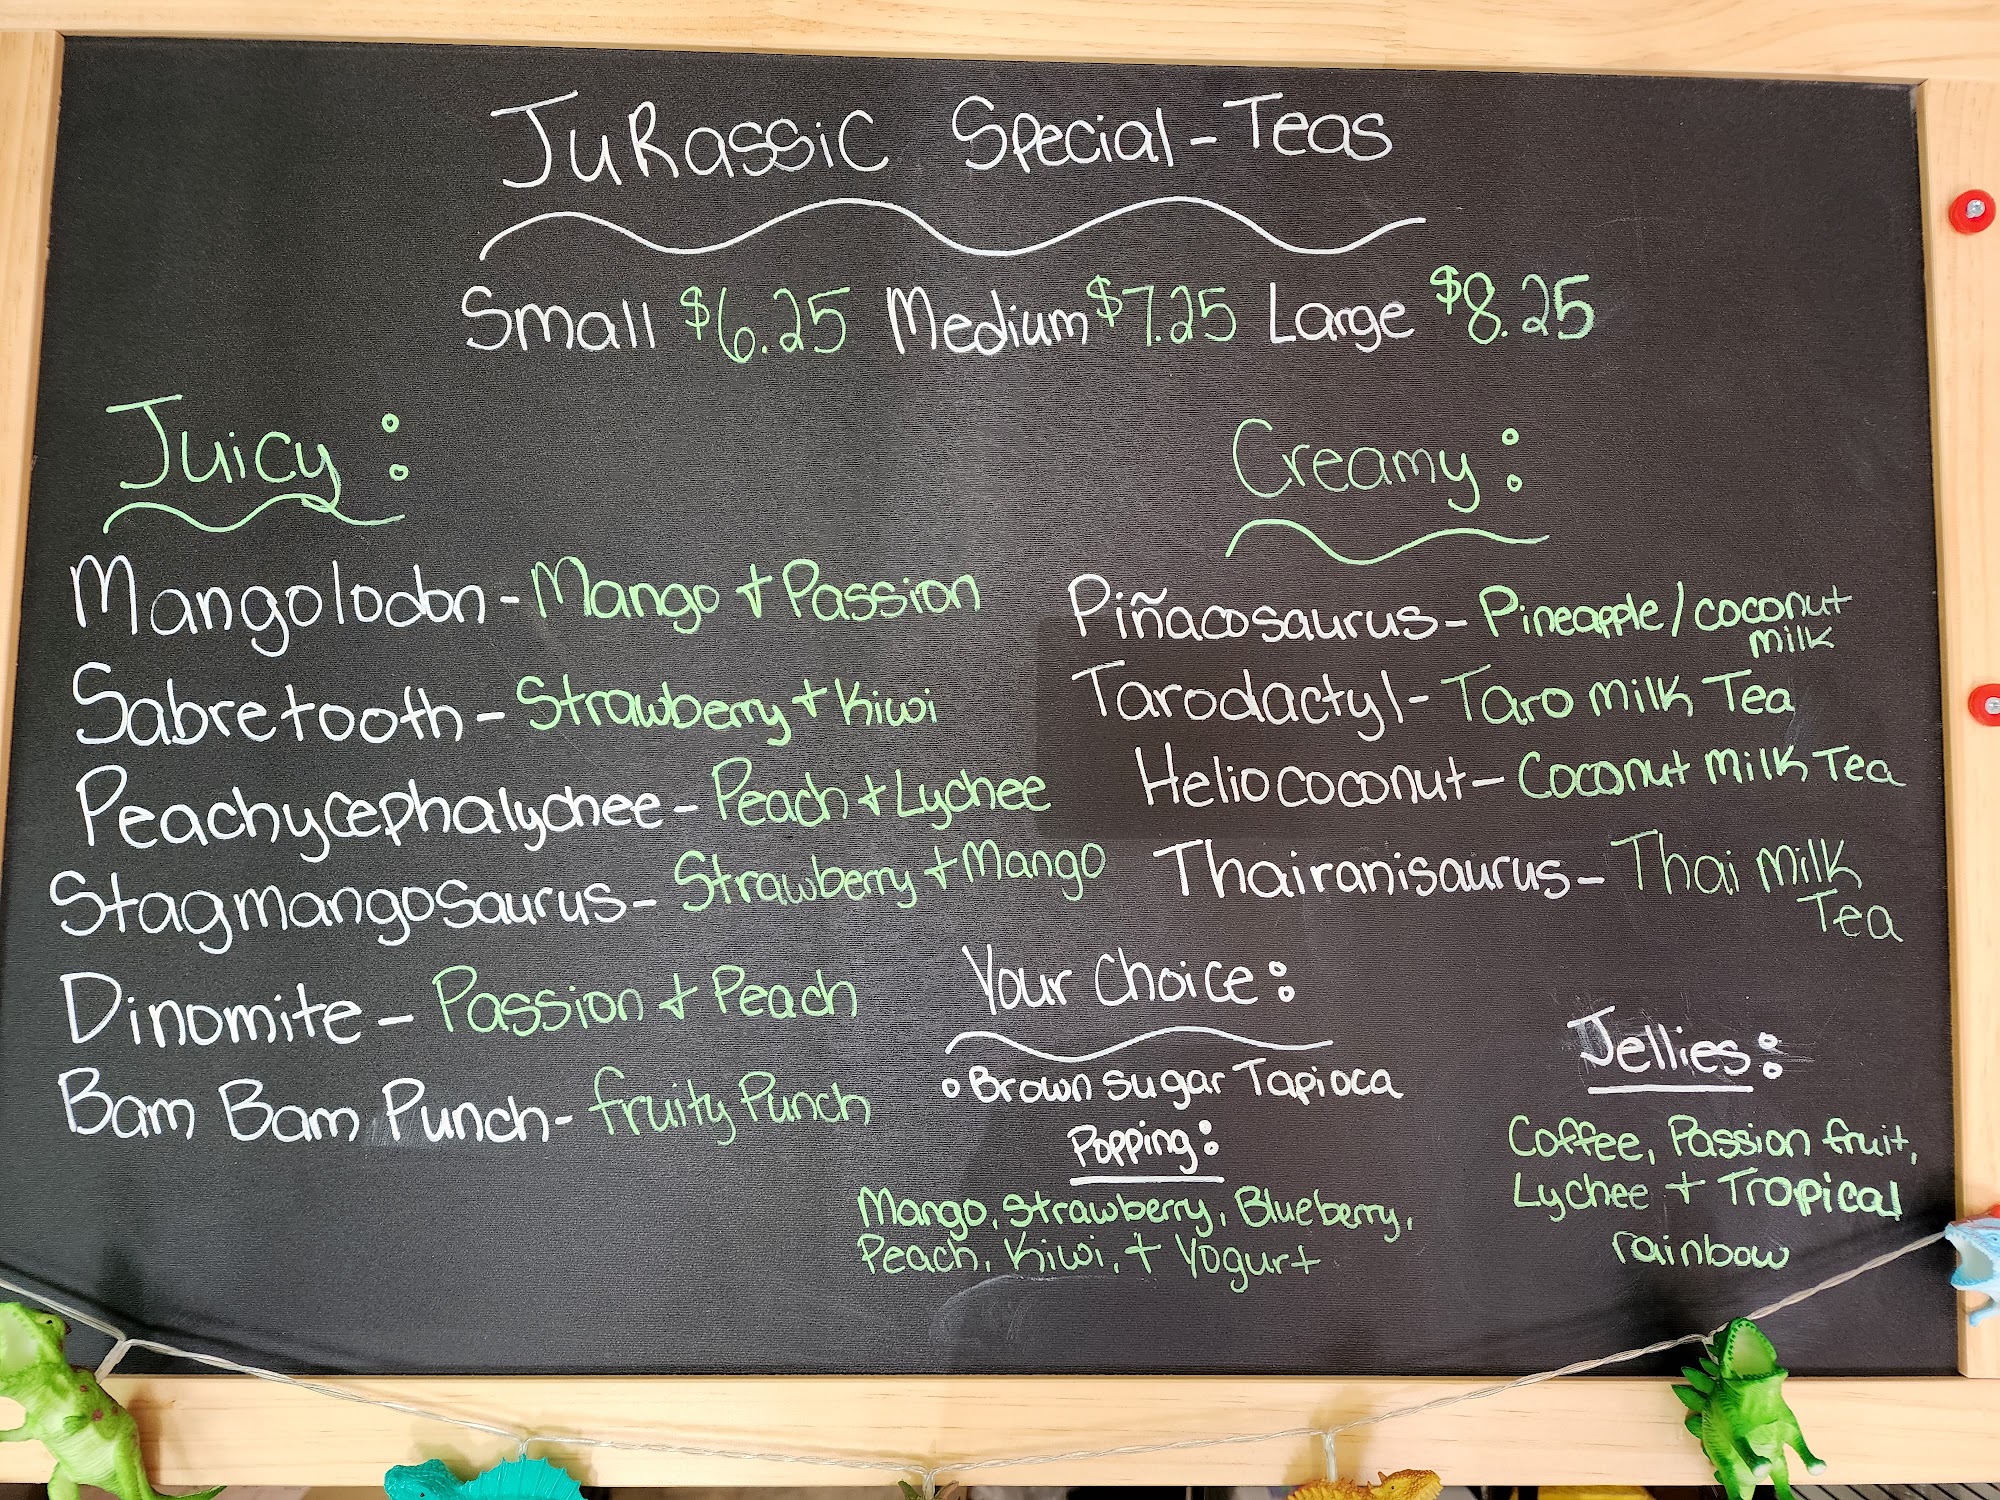 JuRassic Special-Teas
Small $6.25 Medium $7.25 Large $8.25
Juicy:
Mangolodon - Mango + Passion
Sabretooth - Strawberry + Kiwi
Peachycephalychee - Peach + Lychee
Stagmangosaurus - Strawberry + Mango
Dinomite - Passion + Peach
Bam Bam Punch - fruity Punch
Creamy:
Piñacosaurus - Pineapple / coconut
milk
Tarodactyl - Taro milk Tea
Heliococonut - Coconut milk Tea
Thairanisaurus - Thai milk
Tea
Your Choice:
Brown sugar Tapioca
Popping:
Mango, Strawberry, Blueberry,
Peach, Kiwi, + Yogurt
Jellies:
Coffee, Passion fruit,
Lychee + Tropical
rainbow